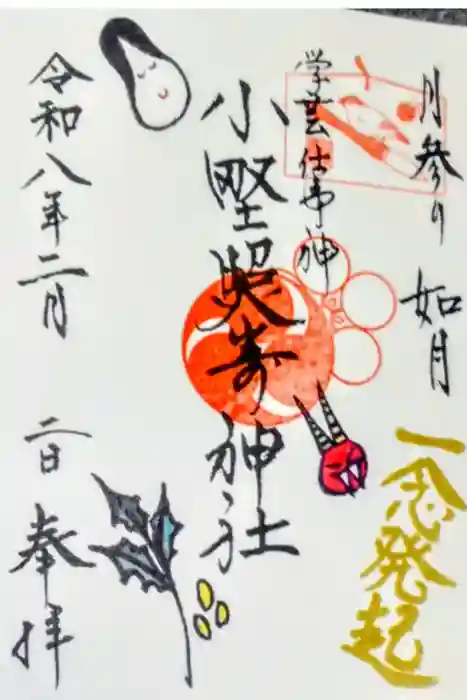 月参り 如月
一念発起
学芸仕事神
小野照崎神社
令和八年二月
二日 奉拝